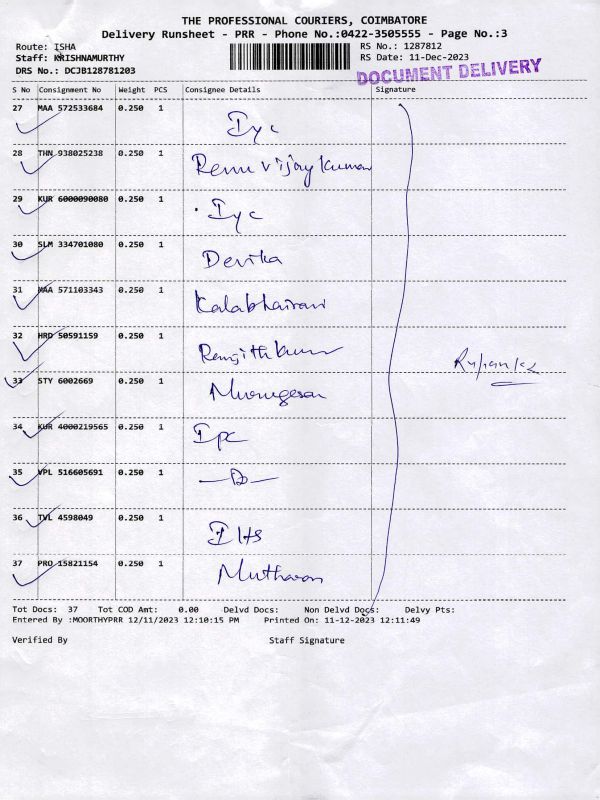 THE PROFESSIONAL COURIERS, COIMBATORE
Delivery Runsheet - PRR - Phone No.:0422-3505555 - Page No.:3
Route: ISHA
RS No.: 1287812
Staff: KRISHNAMURTHY
RS Date: 11-Dec-2023
DRS No.: DCJB128781203
DOCUMENT DELIVERY
S No Consignment No Weight PCS Consignee Details Signature
27 MAA 572533684 0.250 1 Iyc
28 THN 938025238 0.250 1 Renu Vijay Kumar
29 KUR 6000090080 0.250 1 Iyc
30 SLM 334701080 0.250 1 Devika
31 MAA 571103343 0.250 1 Kalabhairavi
32 HRD 50591159 0.250 1 Ranjith Kumar
33 STY 6002669 0.250 1 Murugesan
34 KUR 4000219565 0.250 1 Ipc
35 VPL 516605691 0.250 1
36 TVL 4598049 0.250 1 IHS
37 PRO 15821154 0.250 1
Tot Docs: 37 Tot COD Amt: 0.00 Delvd Docs: Non Delvd Docs: Delvy Pts:
Entered By :MOORTHYPRR 12/11/2023 12:10:15 PM Printed On: 11-12-2023 12:11:49
Verified By Staff Signature